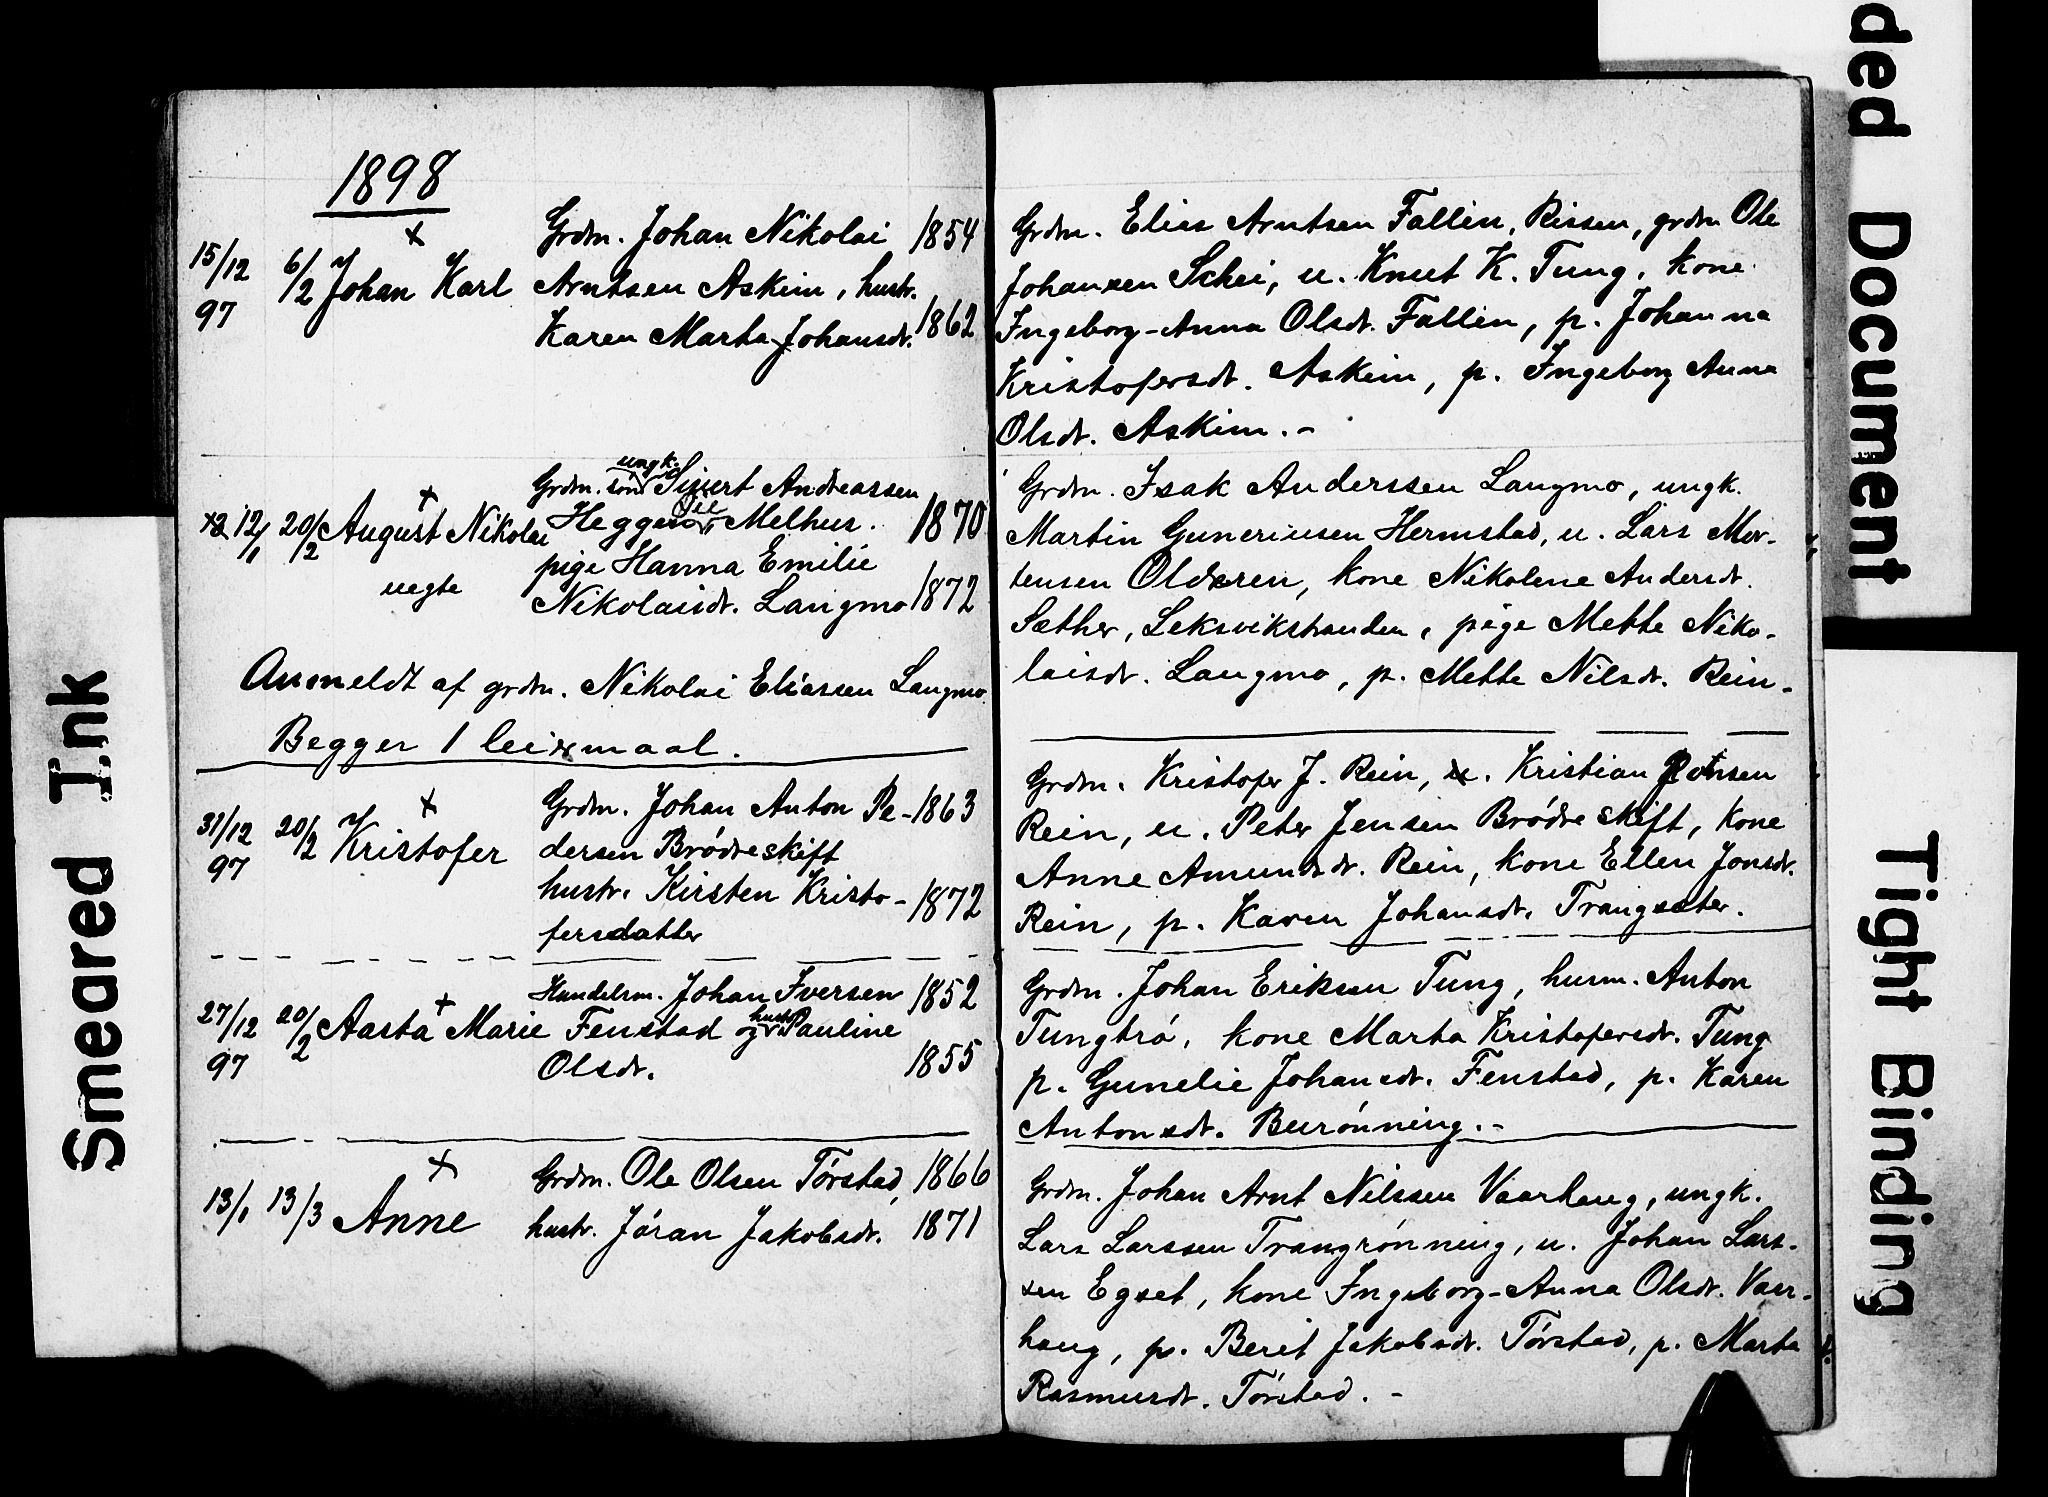 1898
15/12 97 6/2 Johan Karl
Grdm. Johan Nikolai 1854
Arntsen Askim, hustr.
Karen Marta Johansdt. 1862
Grdm. Elias Arntsen Fallin, Rissen, grdm Ole
Johansen Schei, u. Knut K. Tung, kone
Ingeborg-Anna Olsdt. Fallin, p. Johanna
Kristofersdt. Askim, p. Ingeborg Anna
Olsdt. Askim.-
12/1 20/2 August Nikolai
uegte
Grdm. søn ungk. Sivert Andreassen
Melhus. 1870
pige Hanna Emilie
Nikolaisdt. Langmo 1872
Anmeldt af grdm. Nikolai Eliassen Langmo.
Begger 1 leiermaal.
Grdm. Isak Anderssen Langmo, ungk.
Martin Guneriusen Hermstad, u. Lars Mor-
tensen Olderen, kone Nikoline Andersdt.
Sæther, Leksvikstranden, pige Mette Niko-
laisdt. Langmo, p. Mette Nilsdt. Rein-
31/12 97 20/2 Kristofer
Grdm. Johan Anton Pe- 1863
dersen Brødreskift
hustr. Kirsten Kristo- 1872
fersdatter
Grdm. Kristofer J. Rein, u. Kristian
Rein, u. Peter Jensen Brødreskift, kone
Anne Amundsdt. Rein, kone Ellen Jonsdt.
Rein, p. Karen Johansdt. Trangsæter.
27/12 97 20/2 Aasta Marie
Handelsm. Johan Iversen 1852
Fenstad og hustr. Pauline
Olsdt. 1855
Grdm. Johan Eriksen Tung, husm. Anton
Tungtrø, kone Marta Kristofersdt. Tung
p. Gunelie Johansdt. Fenstad, p. Karen
Antonsdt. Burønning.-
13/1 13/3 Anne
Grdm. Ole Olsen Tørstad, 1866
hustr. Jøran Jakobsdt. 1871
Grdm. Johan Arnt Nilssen Vaarhaug, ungk.
Lars Larssen Trangrønning, u. Johan Lars-
sen Egset, kone Ingeborg-Anna Olsdt. Vaar-
haug, p. Berit Jakobsdt. Tørstad, p. Marta
Rasmusdt. Tørstad.-
Smeared Ink
ded Document
Tight Binding